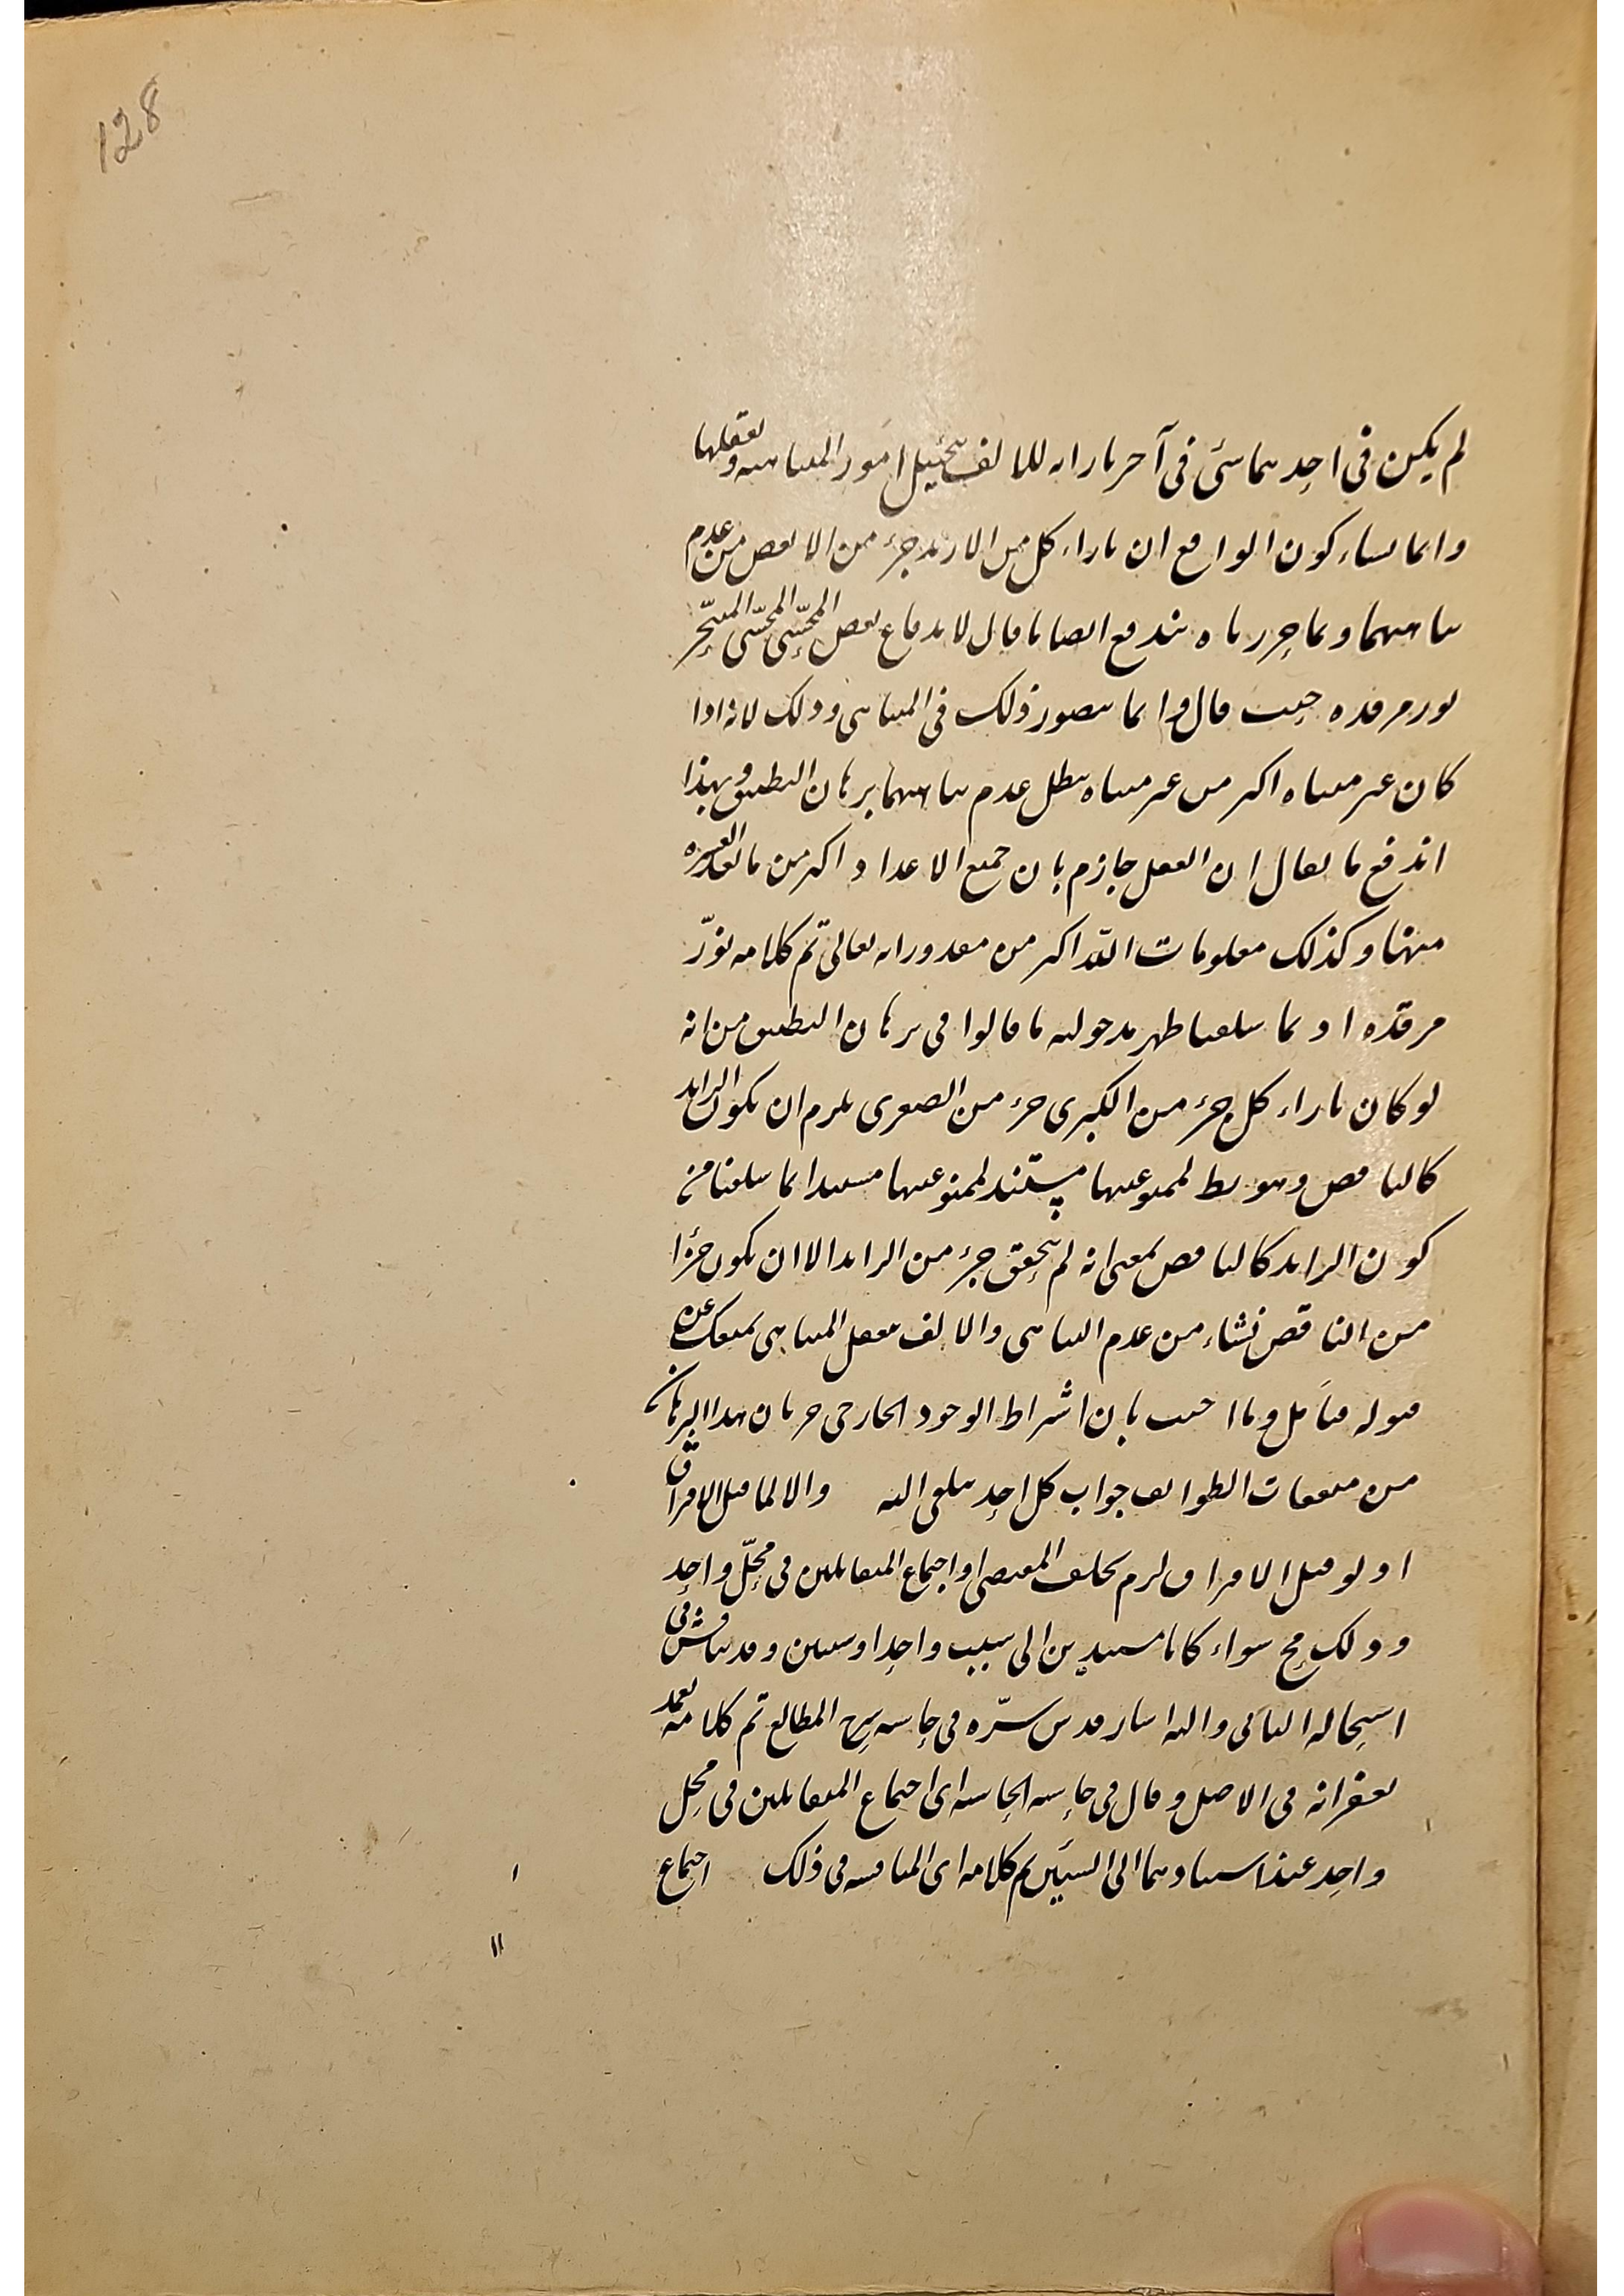 128
لم يكن فى احدهما شئ فى آخر بازائه للمالف بتخييل امور المتناهيه وتعقلها
وانما نشاء كون الواقع ان بازاء كل من الازيد جزء من الانقص من عدم
تناهيهما وبما حررناه يندفع ايضا ما قال لاندفاع بعض المحشى المحشى المتبحر
نور مرقده حيث قال وانما يتصور ذلك فى المتناهى وذلك لانه اذا
كان غير متناه اكثر من غير متناه يبطل عدم تناهيهما برهان التطبيق وبهذا
اندفع ما يقال ان العقل جازم بان جميع الاعداد اكثر من ما بعد العشره
منها وكذلك معلومات الله اكثر من مقدوراته تعالى تم كلامه نوّر
مرقده اذ بما تلونا ظهر مدخوليه ما قالوا فى برهان التطبيق من انه
لو كان بازاء كل جزء من الكبرى جزء من الصغرى يلزم ان يكون الزايد
كالناقص وهو بط لممنوعيتها مستند لممنوعيتها مستندا بما تلونا من
كون الزايد كالناقص بمعنى انه لم يتحقق جزء من الزايد الا ان يكون جزءا
من الناقص نشاء من عدم التناهى والالف بتعقل المتناهى يمنعك عن
قبوله فتأمل وما اجيب بان اشتراط الوجود الخارجى جريان هذا البرهان
من متفقات الطوايف جواب كل احد يلقى اليه والا لما قبل الافتراق
اذ لو قبل الافتراق لزم تخلف المقتضى او اجتماع المتقابلين فى محلّ واحد
وذلك مح سواء كانا مستندين الى سبب واحد او سببين وقد يناقش فى
استحاله الثانى واليه اشار قدس سرّه فى حاشيه شرح المطالع تم كلامه تغمد
بغفرانه فى الاصل وقال فى حاشيه الحاشيه اى اجتماع المتقابلين فى محل
واحد عند استنادهما الى السببين تم كلامه اى المناقشه فى ذلك اجتماع